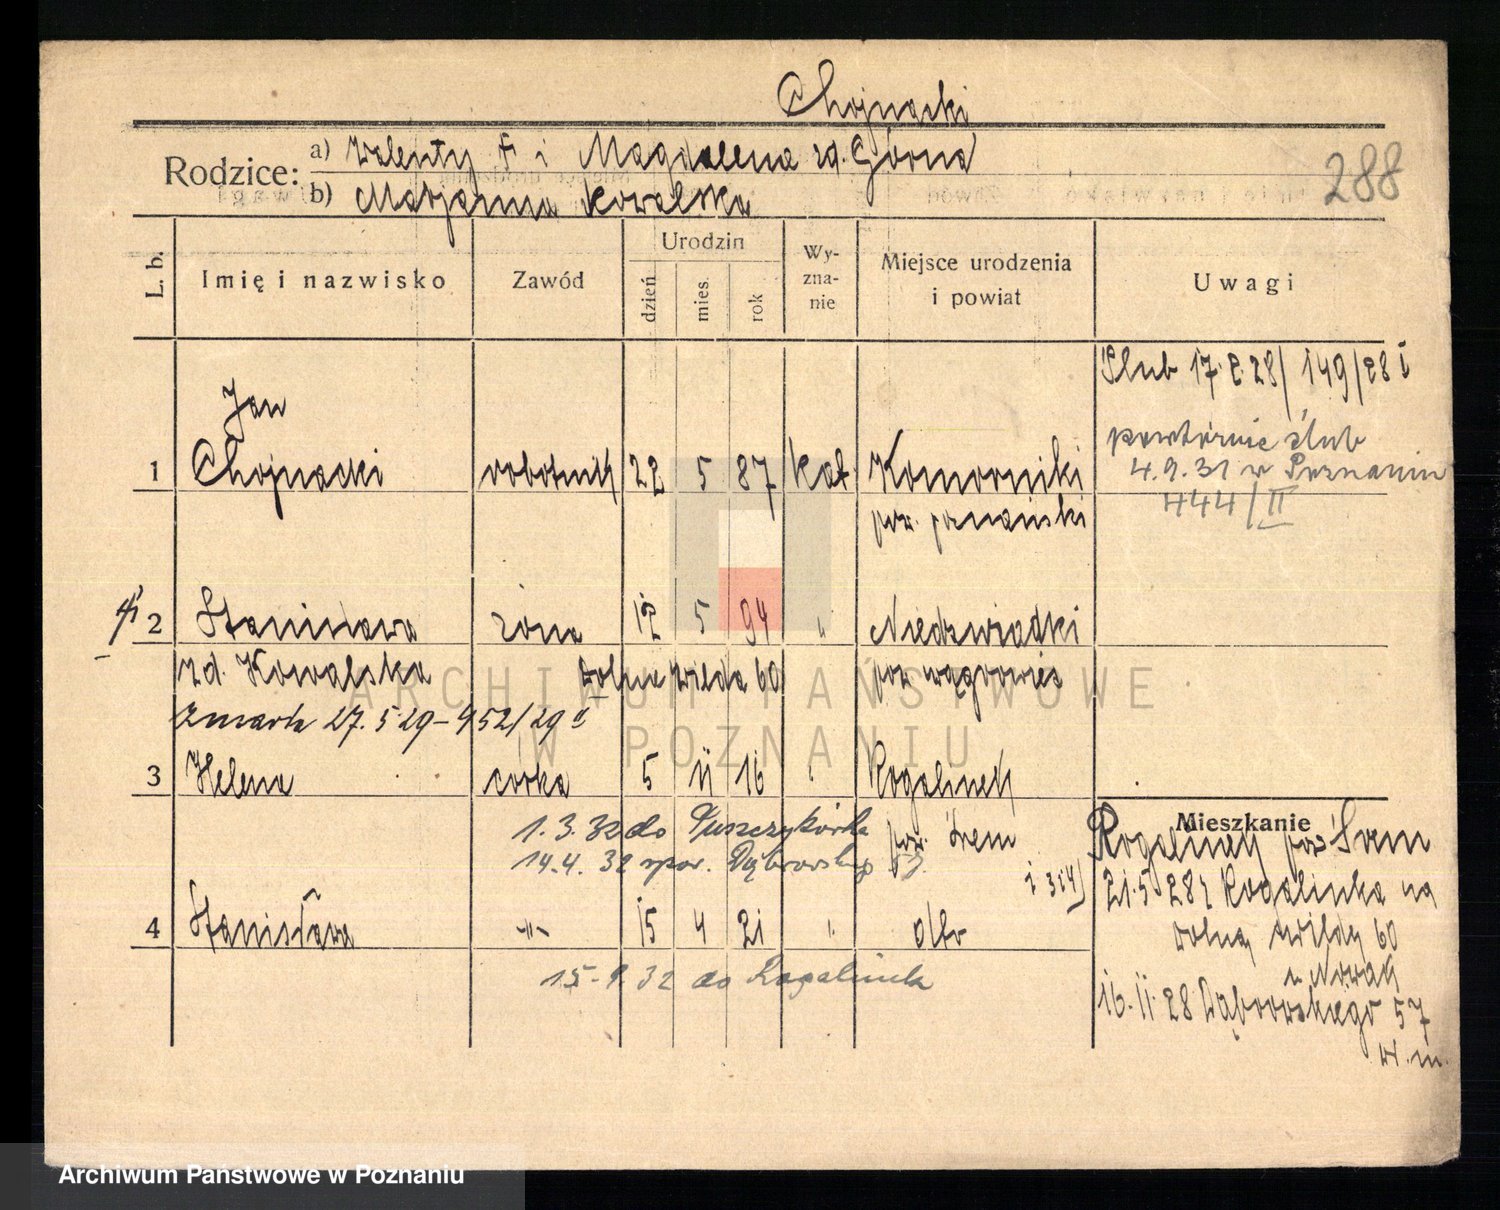 Chojnacki
Rodzice: a) Walenty † i Magdalena zd. Górna
b) Marjanna Kowalska
288
L. b.
Imię i nazwisko
Zawód
Urodzin
dzień
mies.
rok
Wy-
zna-
nie
Miejsce urodzenia
i powiat
Uwagi
Ślub 17.2.28/ 149/28 I
powtórnie ślub
4.9.31 w Poznaniu
444/II
Jan
1 Chojnacki robotnik 22 5 87 kat. Komorniki
pow. poznański
† 2 Stanisława żona 12 5 94 " Niedźwiadki
zd. Kowalska Dolna Wilda 60 pow wągrowiec
Zmarła 27.5 29 – 952/29 II
3 Helena córka 5 11 16 " Rogalinek
pow. Śrem
1.3.32 do Puszczykówka
14.4.32 spow. Dąbrowskiego 57.
4 Stanisława -"- 15 4 21 "
15-9.32 do Rogalinka
Mieszkanie
Rogalinek pow Śrem
21.5 28 z Rogalinka na
Dolną Wildę 60
u Nowak
16.11.28 Dąbrowskiego 57
w. m.
ARCHIWUM PAŃSTWOWE
W POZNANIU
Archiwum Państwowe w Poznaniu